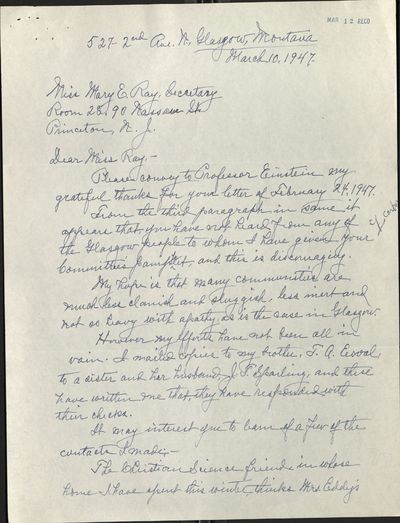 MAR 12 RECD
527- 2nd Ave. N, Glasgow, Montana
March 10, 1947.
Miss Mary E. Ray, Secretary
Room 28, 90 Nassau St.
Princeton, N. J.
Dear Miss Ray,-
Please convey to Professor Einstein my
grateful thanks for your letter of February 24, 1947.
From the third paragraph in same it
appears that you have not heard from any of
the Glasgow people to whom I have given your
Committee's pamphlet, and this is discouraging.
My hope is that many communities are
much less clanish and sluggish, less inert and
not so heavy with apathy, as is the case in Glasgow.
However my efforts have not been all in
vain. I mailed copies to my brother, T. A.
to a sister and her husband, J. F. Sparling, and these
have written me that they have responded with
their checks.
It may interest you to learn of a few of the
contacts I made;-
The Christian Science friend, in whose
home I have spent this winter, thinks Mrs. Eddy's